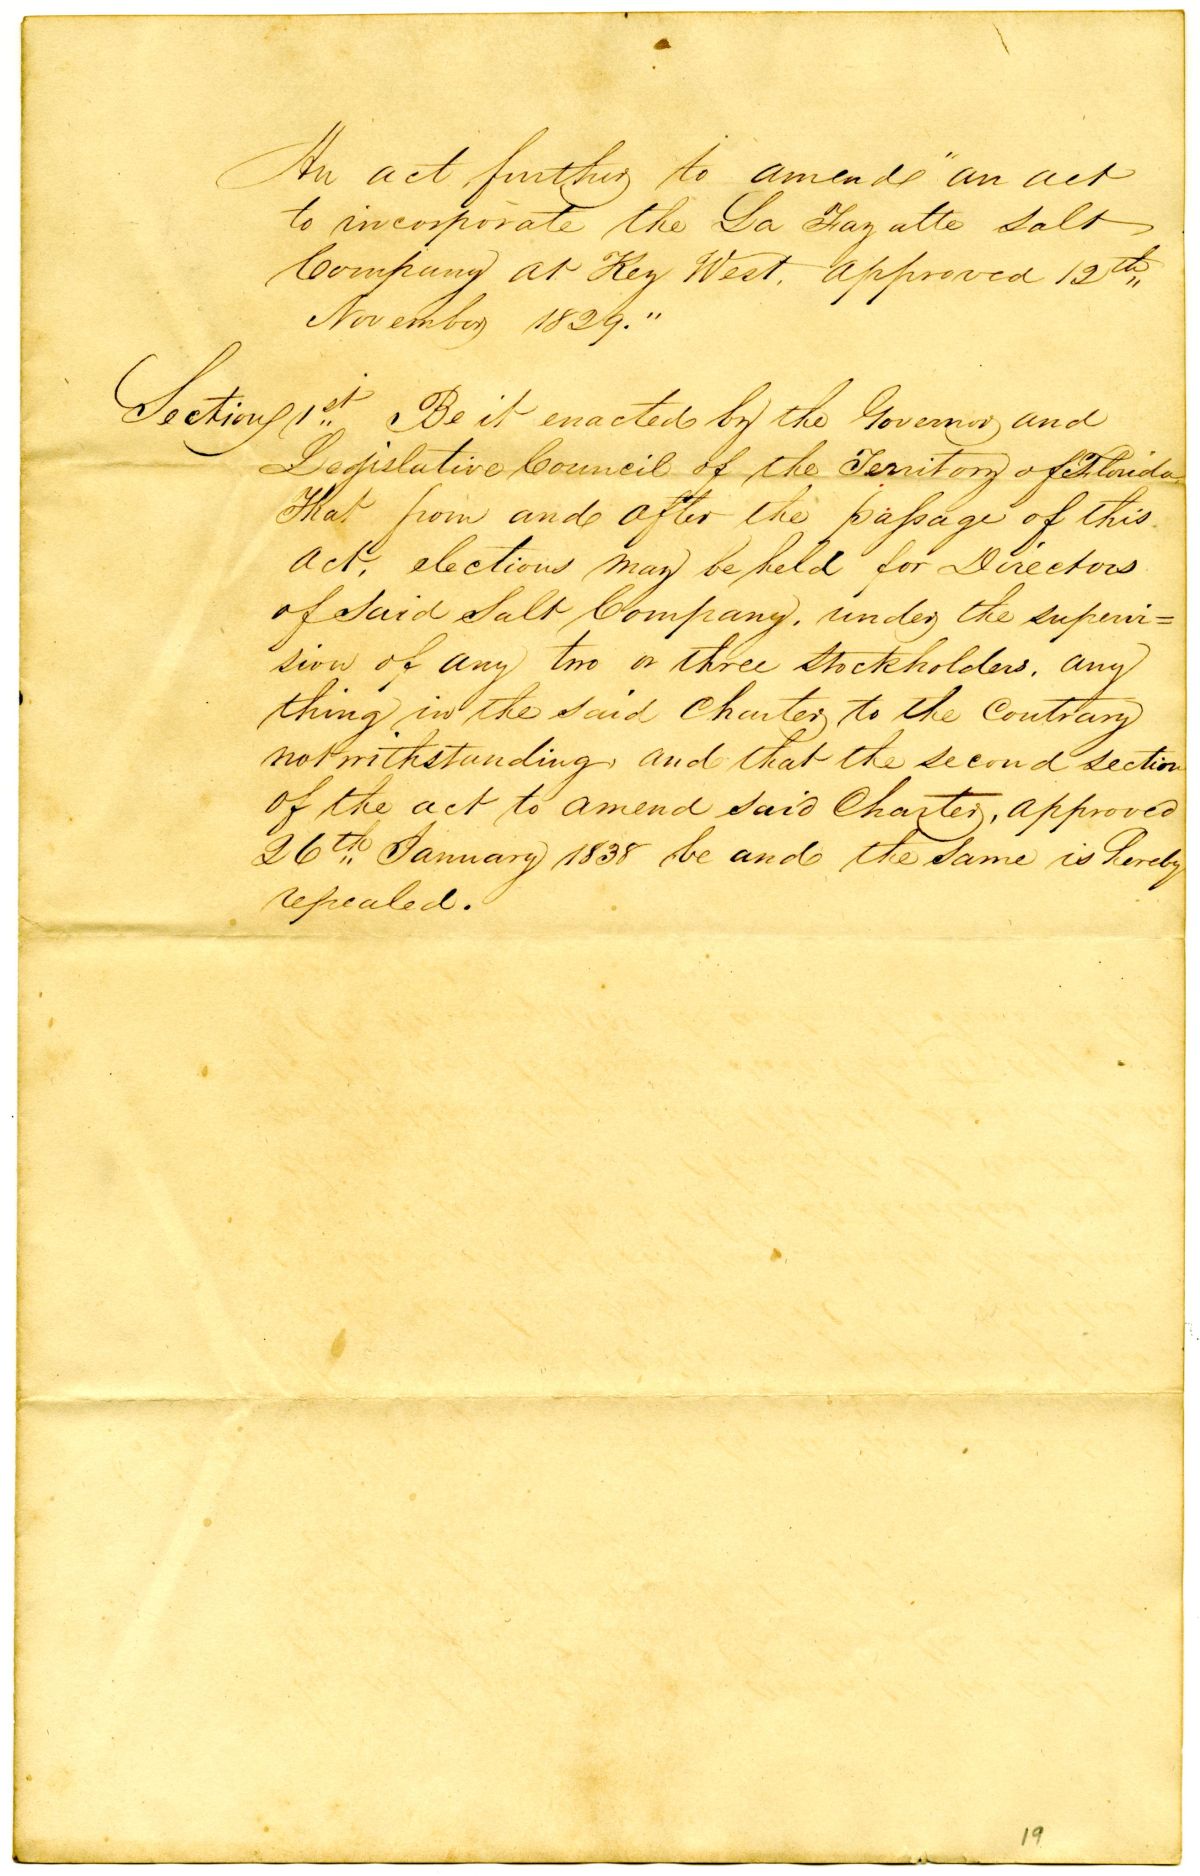 An act further to amend "an act
to incorporate the La Fayatte Salt
Company at Key West, approved 12th
November 1829."
Section 1st Be it enacted by the Governor and
Legislative Council of the Territory of Florida
That from and after the passage of this
act, elections may be held for Directors
of said Salt Company, under the supervi=
sion of any two or three stockholders, any
thing in the said Charter to the contrary
notwithstanding, and that the second section
of the act to amend said Charter, approved
26th January 1838 be and the same is hereby
repealed.
19